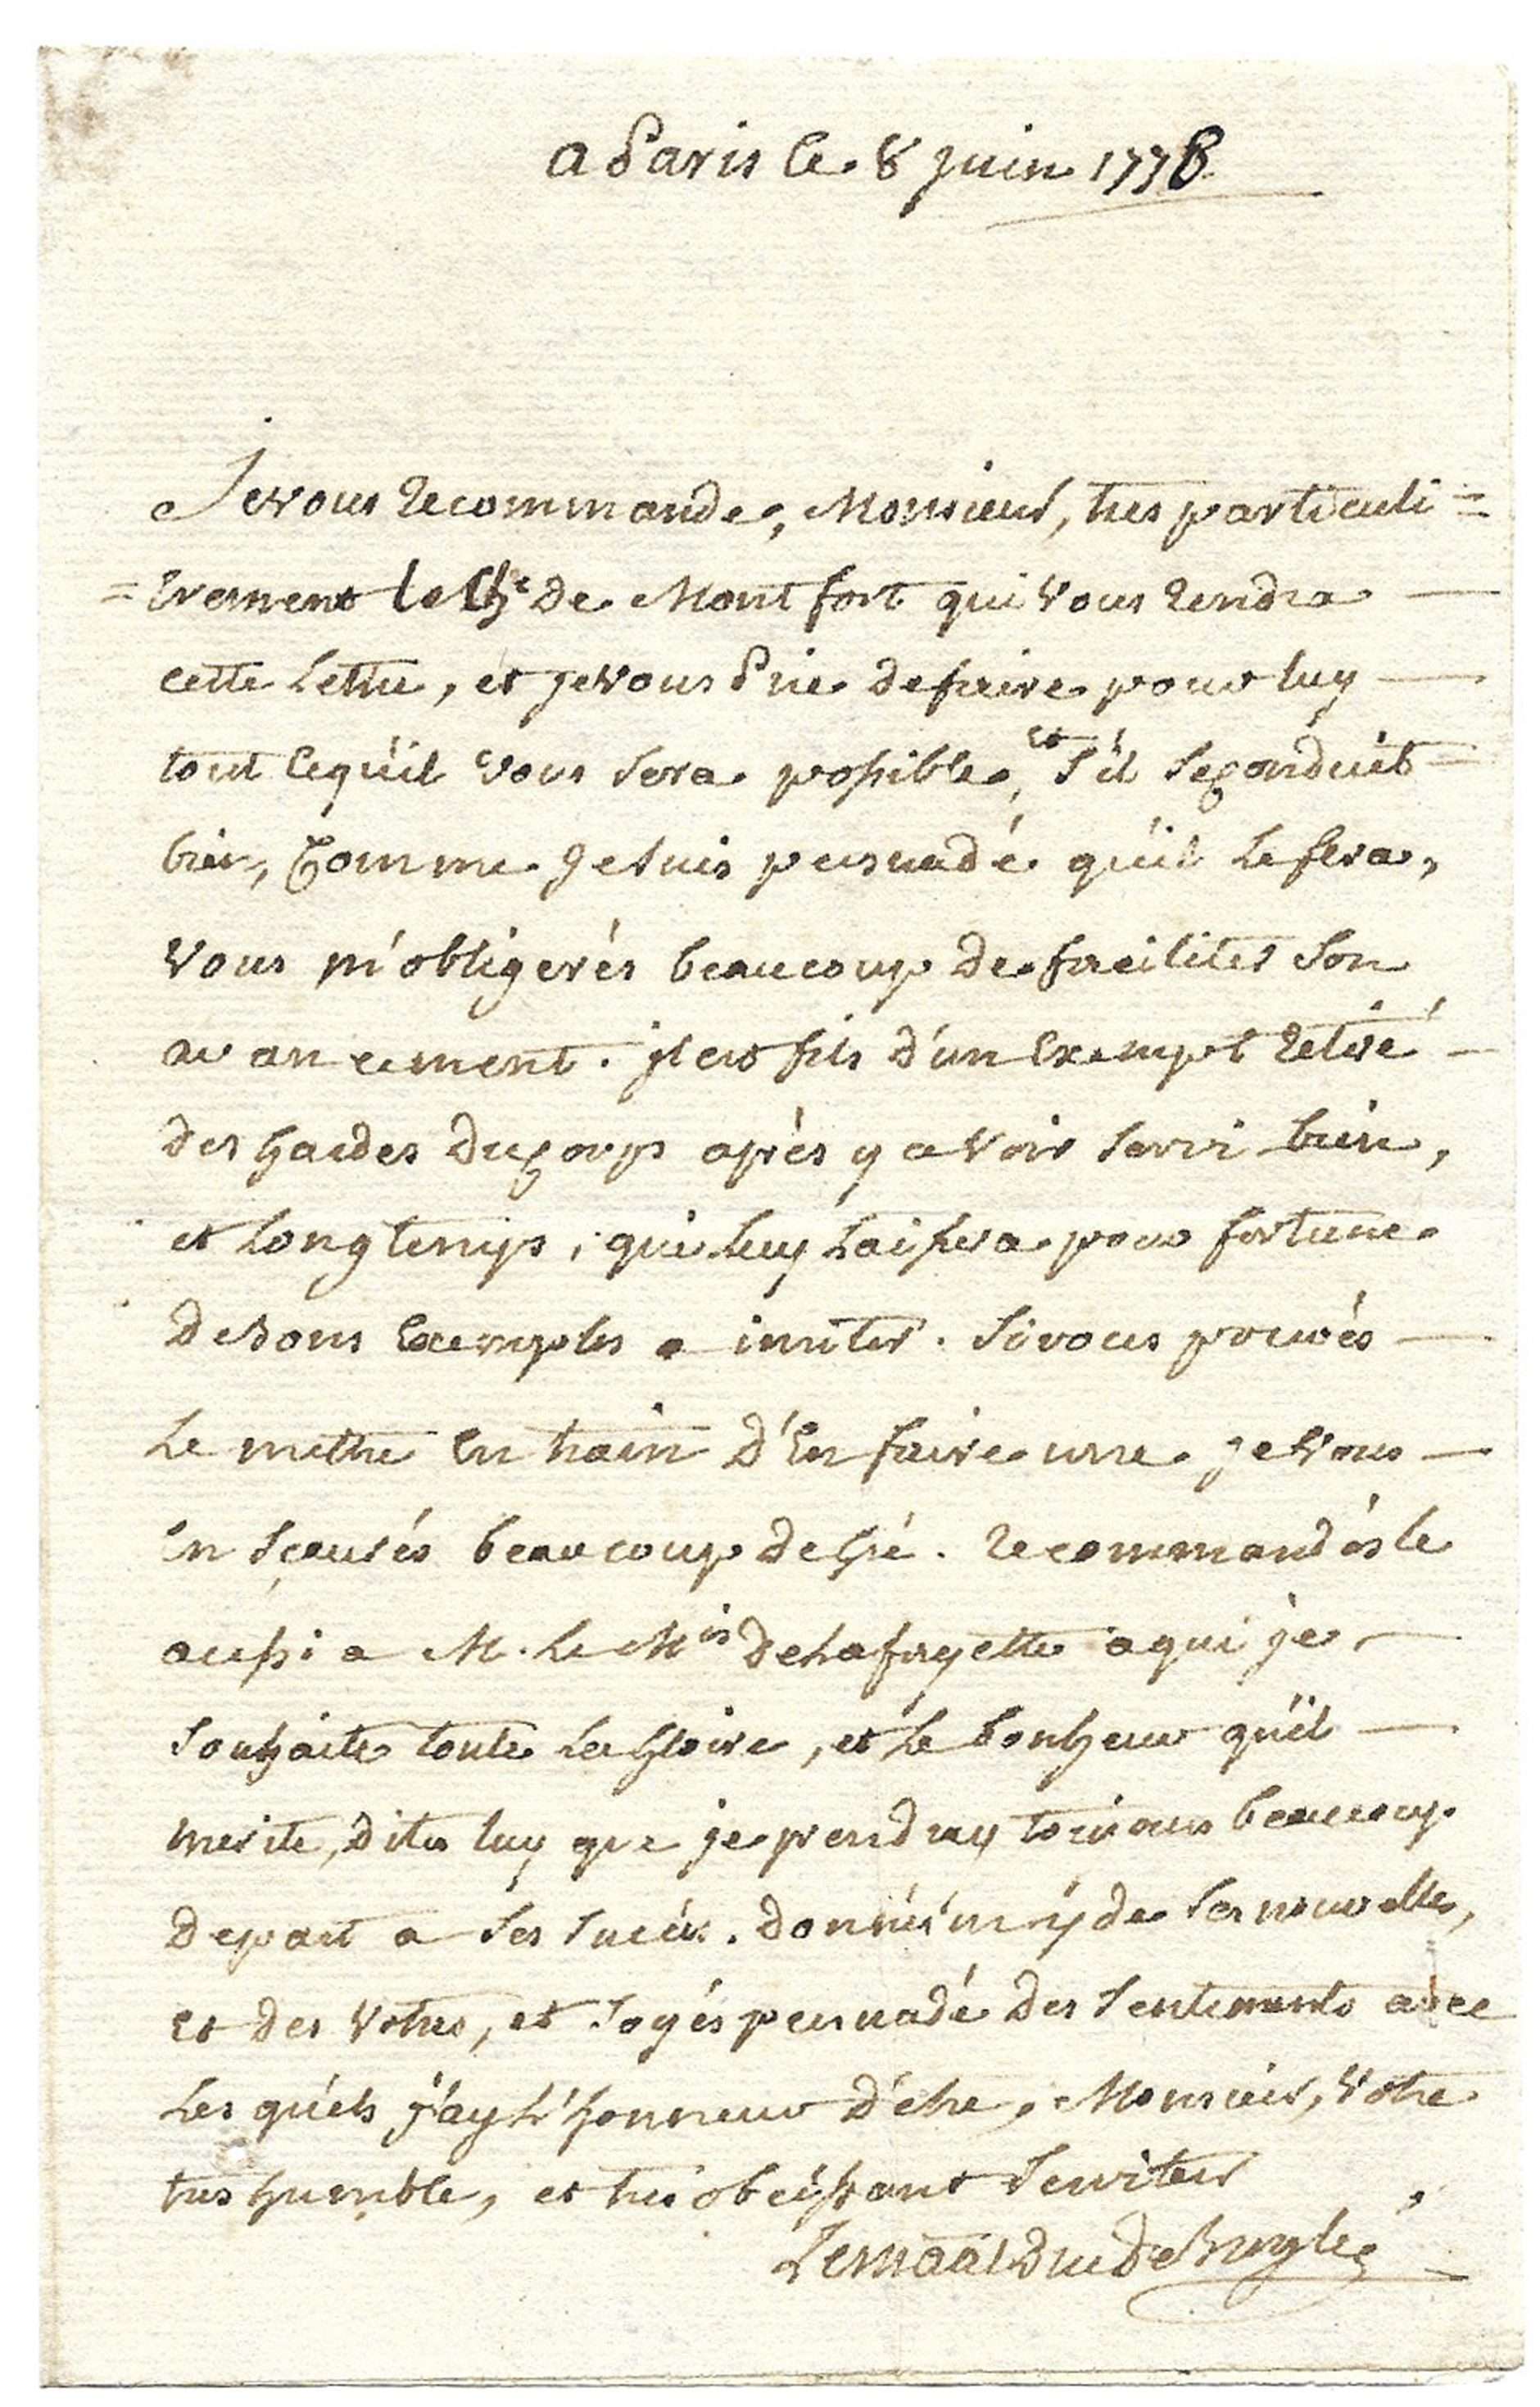 a Paris le 8 juin 1778
Je vous recommande, Monsieur, tres particuli=
=erement le Ch^e de Montfort qui vous rendra
cette Lettre, et je vous Prie de faire pour luy
tout ce qu'il vous sera possible, et s'il se conduit
bien, comme je suis persuadé qu'il le fera,
vous m'obligerés beaucoup de faciliter son
avancement. jl est fils d'un Exempt retiré
des gardes du corps après y avoir servi bien,
et Longtemps, qui luy Laissera pour fortune
de bons Exemples a imiter. Si vous pouvés
Le mettre En train d'En faire une je vous
En sçaurés beaucoup de Gré. recommandés le
aussi a M. Le M^is de Lafayette a qui je
souhaite toute La Gloire, et Le bonheur qu'il
merite, dites luy que je prendray toujours beaucoup
de part a ses succés. donnés m'y de ses nouvelles,
et des Votres, et soyés persuadé des sentiments avec
Les quels j'ay L'honneur d'etre, Monsieur, Votre
tres humble, et tres obeissant serviteur
Le maal Duc de Broglie